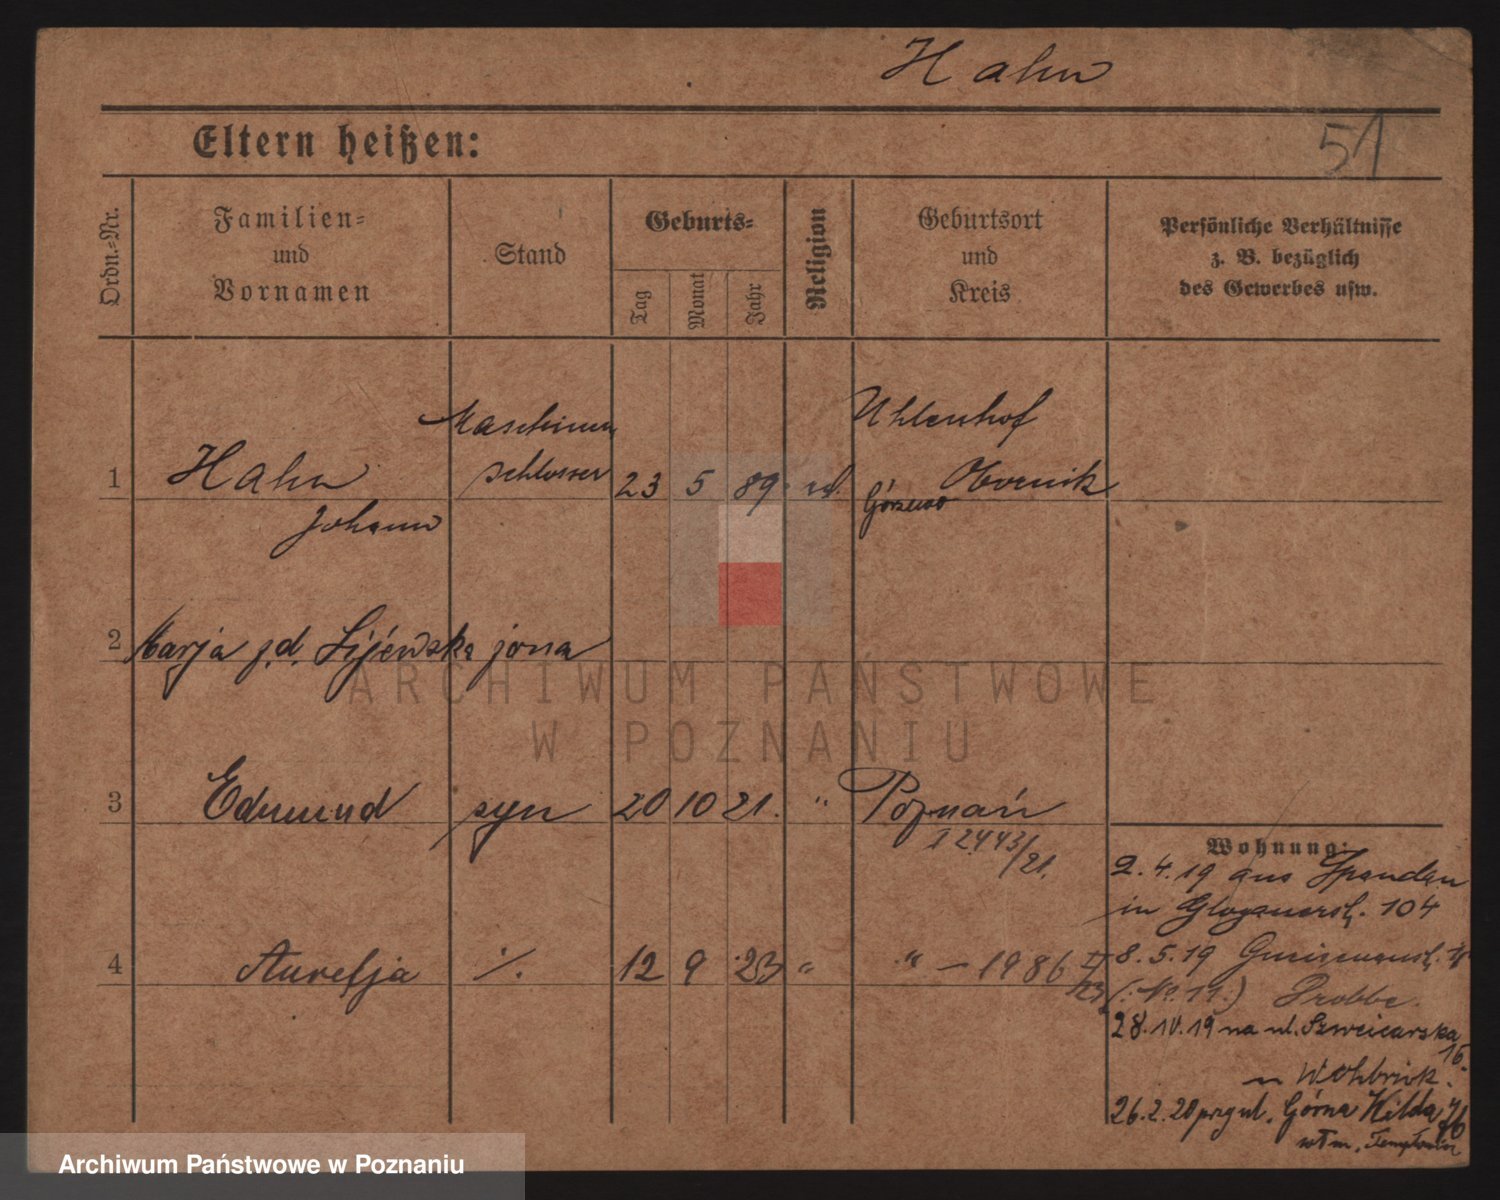 Hahn
51
Eltern heißen:
Ordn.-Nr.
Familien-
und
Vornamen
Stand
Geburts-
Tag
Monat
Jahr
Religion
Geburtsort
und
Kreis
Persönliche Verhältnisse
z. B. bezüglich
des Gewerbes usw.
Maschinen
schlosser
Uhlenhof
1 Hahn 23 5 89 Obornik
Johann
2 Marja
3 Edmund syn 20 10 21. " Poznań
I 2443/21.
Wohnung:
2. 4. 19 aus Spandau
in Glogauerstr. 104
4 Aurelja ·/. 12 9 23 " " — 1986
8. 5. 19
(: No. 11 :)
28. 10. 19 na ul. Szweicarska
15.
26. 2. 20 ul. Górna Wilda
ARCHIWUM PAŃSTWOWE
W POZNANIU
Archiwum Państwowe w Poznaniu